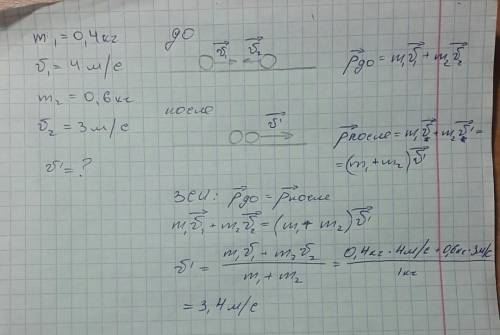 m₁ = 0,4 кг
v₁ = 4 м/с
m₂ = 0,6 кг
v₂ = 3 м/с
v' = ?
до
v⃗₁ v⃗₂
p⃗до = m₁v⃗₁ + m₂v⃗₂
после
v⃗'
p⃗после = m₁v⃗' + m₂v⃗' =
= (m₁ + m₂)v⃗'
ЗСИ: p⃗до = p⃗после
m₁v⃗₁ + m₂v⃗₂ = (m₁ + m₂)v⃗'
v' = (m₁v₁ + m₂v₂)/(m₁ + m₂) = (0,4кг · 4м/с + 0,6кг · 3м/с)/(1кг)
= 3,4 м/с